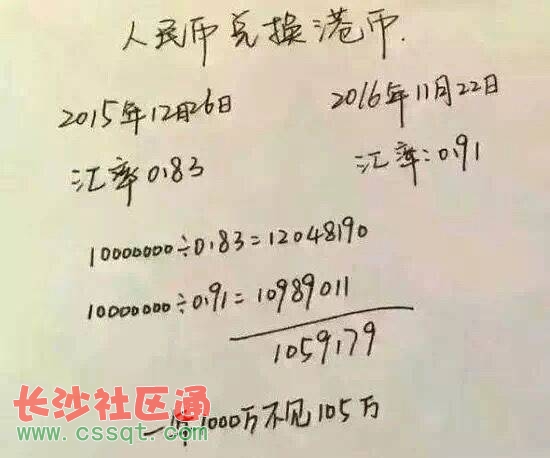 人民币兑换港币.
2015年12月26日
2016年11月22日
汇率0.83
汇率:0.91
10000000÷0.83=12048190
10000000÷0.91=10989011
1059179
一年1000万不见105万
长沙社区通
www.cssqt.com